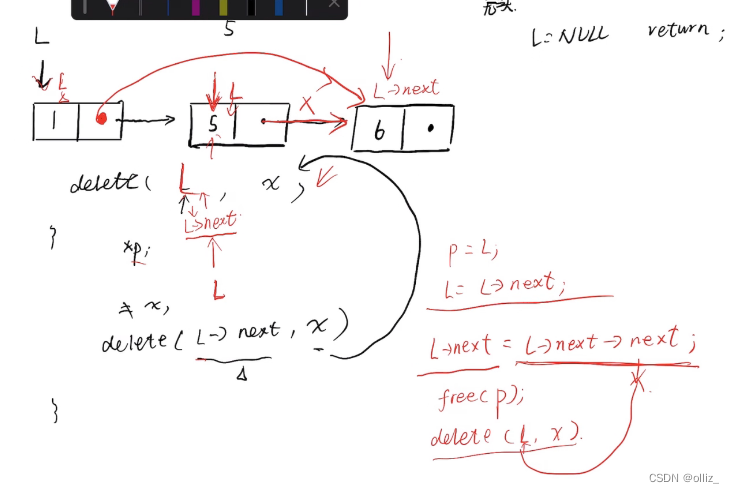 5
L
L=NULL return ;
L
L
L→next
1
5
6
X
delete( L , x )
L→next
}
*p;
L
p = L;
L = L→next;
≠ x,
delete( L→next , x )
L→next = L→next→next ;
free(p);
delete (L, x).
}
CSDN @olliz_